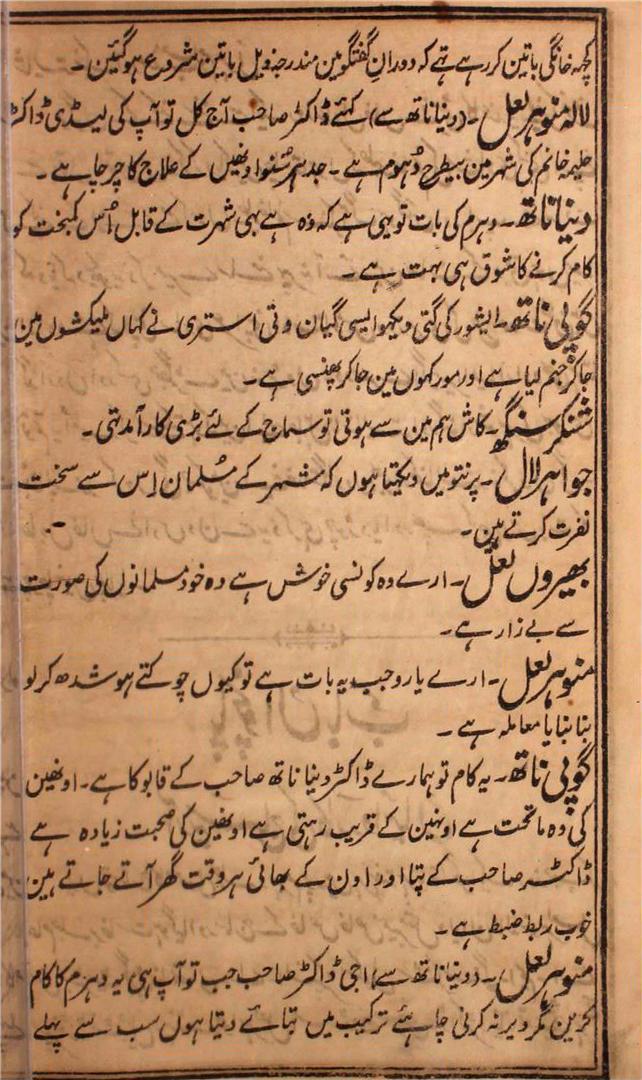 کچہہ خانگی باتین کررہے تہے کہ دورانِ گفتگو مین مندرجہ ذیل باتین شروع ہوگئین۔
لالہ منوہر لعل۔ (دینا ناتھ سے) کہئے ڈاکٹر صاحب آج کل تو آپ کی لیڈی ڈاکٹر
حلیمہ خانم کی شہر مین بیطرح دُہوم ہے۔ جدہر سُنو اونھیں کے علاج کا چرچا ہے۔
دینا ناتھ۔ دہرم کی بات تو یہی ہے کہ وہ ہے بہی شہرت کے قابل اُس کمبخت کو
کام کرنے کا شوق ہی بہت ہے۔
گوپی ناتھ۔ ایشور کی گتی دیکہو ایسی گیان وتی استری نے کہاں ملیکشوں مین
جاکر جنم لیا ہے اور مورکہوں مین جاکر پھنسی ہے۔
شنکر سنگھ۔ کاش ہم مین سے ہوتی تو سماج کے لئے بڑی کار آمد تی۔
جواہر لال۔ پرنتو میں دیکہتا ہوں کہ شہر کے مُسلمان اِس سے سخت
نفرت کرتے ہین۔
بھیروں لعل۔ ارے وہ کونسی خوش ہے وہ خود مسلمانوں کی صورت
سے بے زار ہے۔
منوہر لعل۔ ارے یارو جب یہ بات ہے تو کیوں چوکتے ہو شدھ کرلو
بنا بنایا معاملہ ہے۔
گوپی ناتھ۔ یہ کام تو ہمارے ڈاکٹر دینا ناتھ صاحب کے قابو کا ہے۔ اونھین
کی وہ ماتحت ہے اونہین کے قریب رہتی ہے اونھین کی صحبت زیادہ ہے
ڈاکٹر صاحب کے پتا اور اون کے بھائی ہر وقت گھر آتے جاتے ہین
خوب ربط ضبط ہے۔
منوہر لعل۔ (دینا ناتھ سے) اجی ڈاکٹر صاحب جب تو آپ ہی یہ دہرم کا کام
کرین مگر دیر نہ کرنی چاہئے ترکیب میں بتائے دیتا ہوں سب سے پہلے